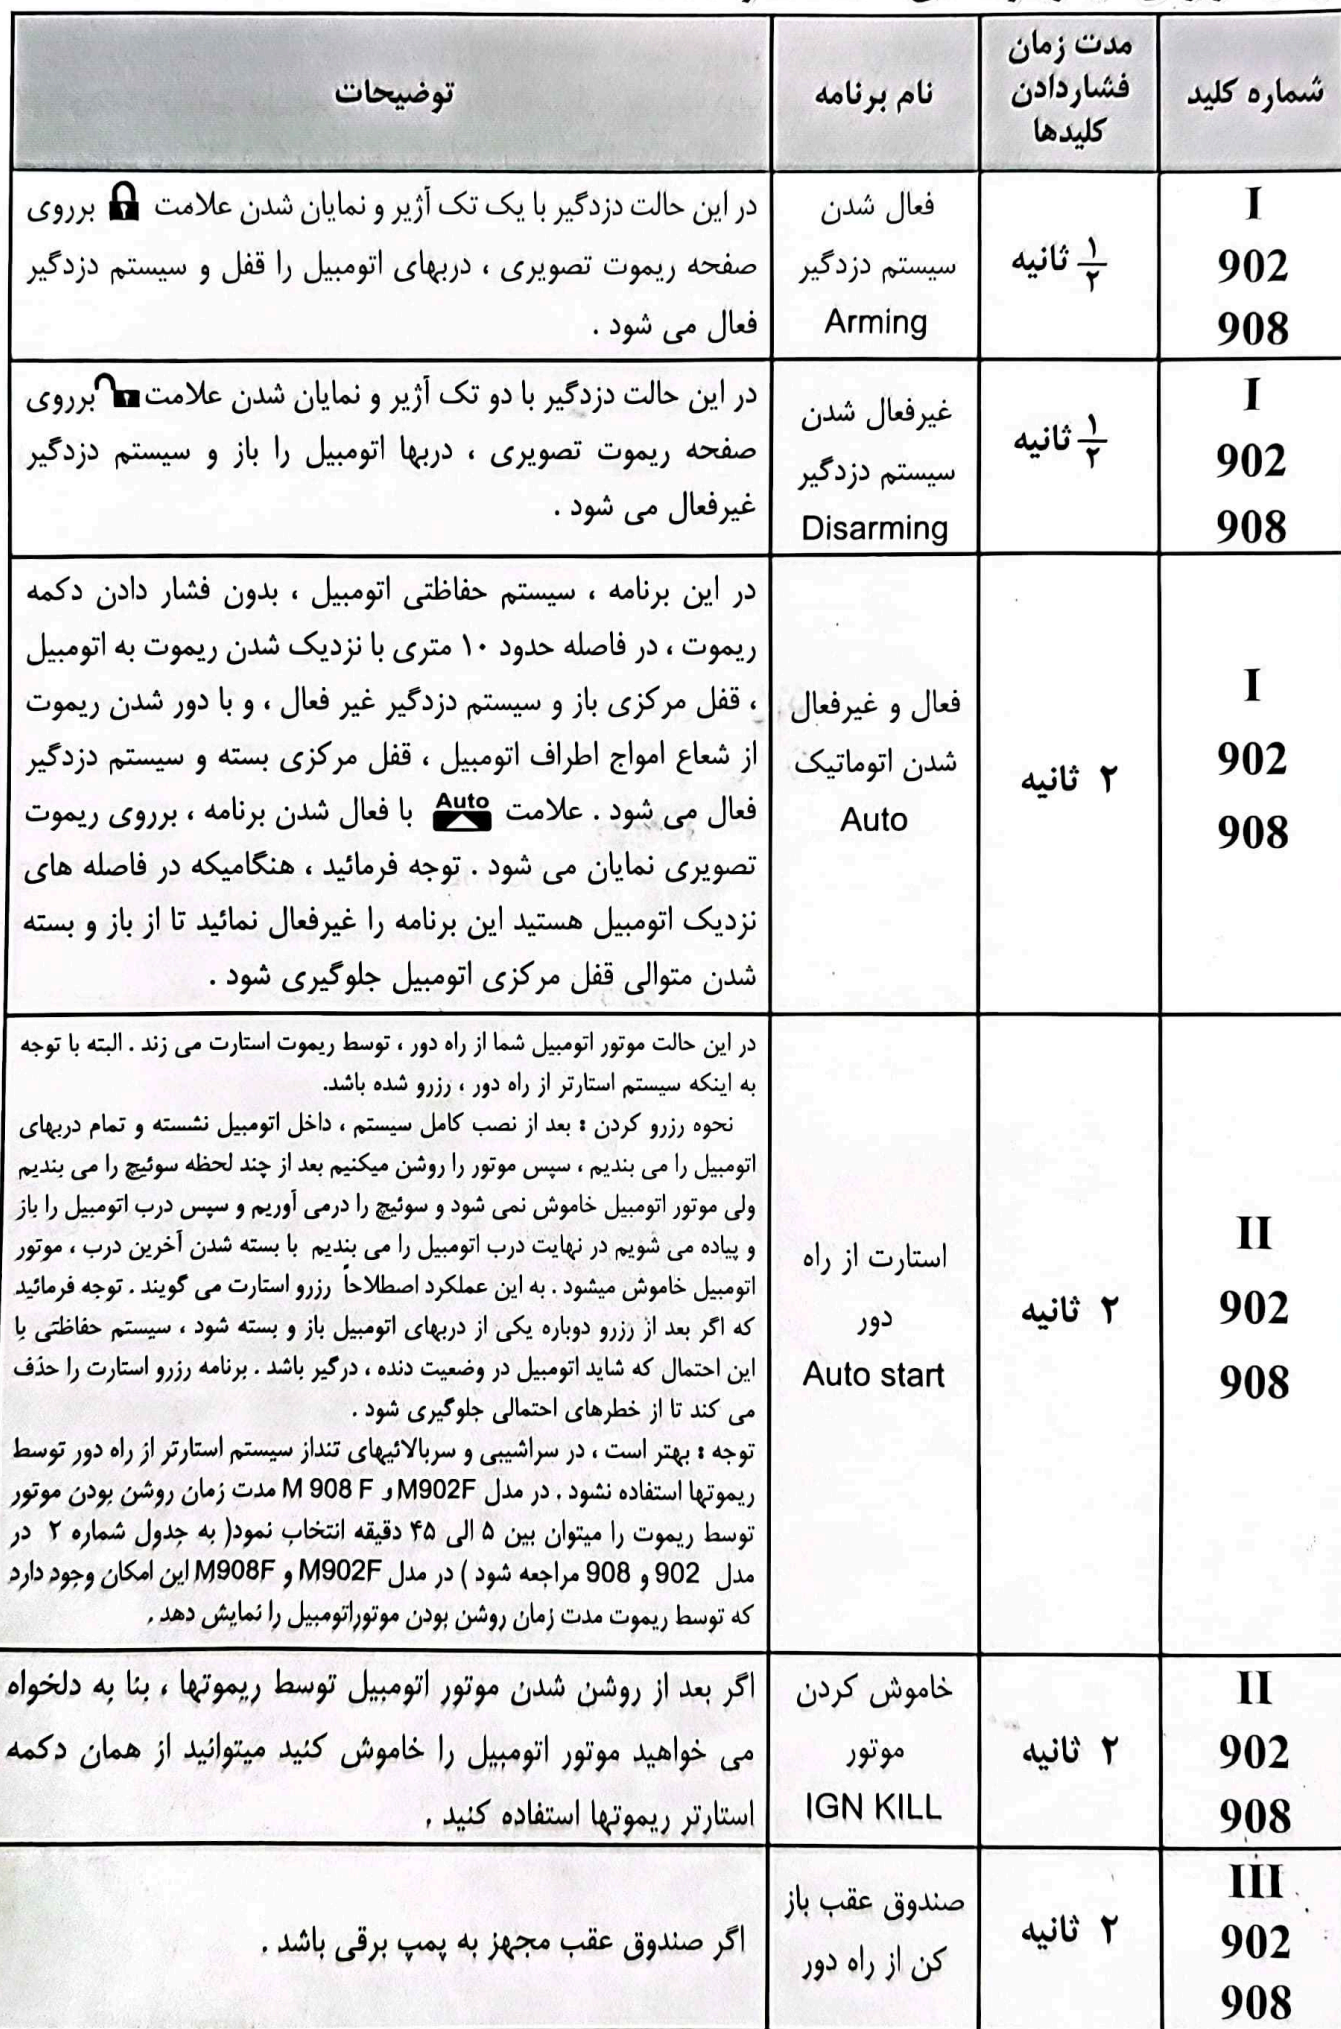 شماره کلید
مدت زمان
فشاردادن
کلیدها
نام برنامه
توضیحات
I
902
908
۱/۲ ثانیه
فعال شدن
سیستم دزدگیر
Arming
در این حالت دزدگیر با یک تک آژیر و نمایان شدن علامت برروی
صفحه ریموت تصویری ، دربهای اتومبیل را قفل و سیستم دزدگیر
فعال می شود .
I
902
908
۱/۲ ثانیه
غیرفعال شدن
سیستم دزدگیر
Disarming
در این حالت دزدگیر با دو تک آژیر و نمایان شدن علامت برروی
صفحه ریموت تصویری ، دربها اتومبیل را باز و سیستم دزدگیر
غیرفعال می شود .
I
902
908
۲ ثانیه
فعال و غیرفعال
شدن اتوماتیک
Auto
در این برنامه ، سیستم حفاظتی اتومبیل ، بدون فشار دادن دکمه
ریموت ، در فاصله حدود ۱۰ متری با نزدیک شدن ریموت به اتومبیل
، قفل مرکزی باز و سیستم دزدگیر غیر فعال ، و با دور شدن ریموت
از شعاع امواج اطراف اتومبیل ، قفل مرکزی بسته و سیستم دزدگیر
فعال می شود . علامت Auto با فعال شدن برنامه ، برروی ریموت
تصویری نمایان می شود . توجه فرمائید ، هنگامیکه در فاصله های
نزدیک اتومبیل هستید این برنامه را غیرفعال نمائید تا از باز و بسته
شدن متوالی قفل مرکزی اتومبیل جلوگیری شود .
II
902
908
۲ ثانیه
استارت از راه
دور
Auto start
در این حالت موتور اتومبیل شما از راه دور ، توسط ریموت استارت می زند . البته با توجه
به اینکه سیستم استارتر از راه دور ، رزرو شده باشد.
نحوه رزرو کردن : بعد از نصب کامل سیستم ، داخل اتومبیل نشسته و تمام دربهای
اتومبیل را می بندیم ، سپس موتور را روشن میکنیم بعد از چند لحظه سوئیچ را می بندیم
ولی موتور اتومبیل خاموش نمی شود و سوئیچ را درمی آوریم و سپس درب اتومبیل را باز
و پیاده می شویم در نهایت درب اتومبیل را می بندیم با بسته شدن آخرین درب ، موتور
اتومبیل خاموش میشود . به این عملکرد اصطلاحاً رزرو استارت می گویند . توجه فرمائید
که اگر بعد از رزرو دوباره یکی از دربهای اتومبیل باز و بسته شود ، سیستم حفاظتی با
این احتمال که شاید اتومبیل در وضعیت دنده ، درگیر باشد . برنامه رزرو استارت را حذف
می کند تا از خطرهای احتمالی جلوگیری شود .
توجه : بهتر است ، در سراشیبی و سربالائیهای تنداز سیستم استارتر از راه دور توسط
ریموتها استفاده نشود . در مدل M902F و M 908 F مدت زمان روشن بودن موتور
توسط ریموت را میتوان بین ۵ الی ۴۵ دقیقه انتخاب نمود( به جدول شماره ۲ در
مدل 902 و 908 مراجعه شود ) در مدل M902F و M908F این امکان وجود دارد
که توسط ریموت مدت زمان روشن بودن موتوراتومبیل را نمایش دهد .
II
902
908
۲ ثانیه
خاموش کردن
موتور
IGN KILL
اگر بعد از روشن شدن موتور اتومبیل توسط ریموتها ، بنا به دلخواه
می خواهید موتور اتومبیل را خاموش کنید میتوانید از همان دکمه
استارتر ریموتها استفاده کنید .
III
902
908
۲ ثانیه
صندوق عقب باز
کن از راه دور
اگر صندوق عقب مجهز به پمپ برقی باشد .